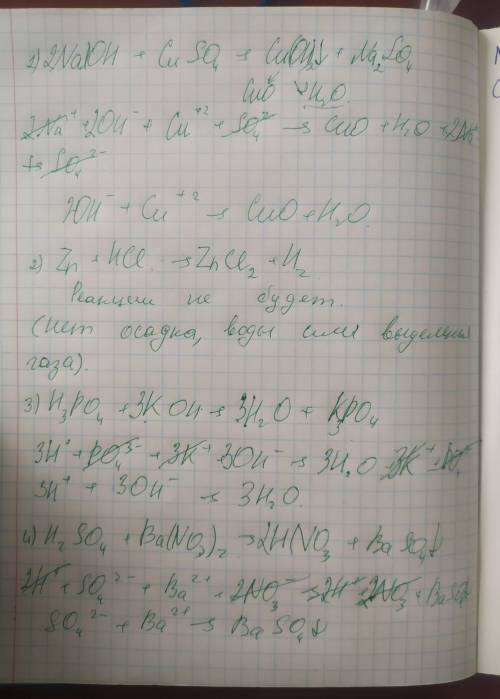 1) 2NaOH + CuSO₄ → Cu(OH)₂↓ + Na₂SO₄
CuO H₂O
2Na⁺ + 2OH⁻ + Cu⁺² + SO₄²⁻ → CuO + H₂O + 2Na⁺
+ SO₄²⁻
2OH⁻ + Cu⁺² → CuO + H₂O
2) Zn + HCl → ZnCl₂ + H₂
Реакции не будет.
(нет осадка, воды или выделения
газа).
3) H₃PO₄ + 3KOH → 3H₂O + K₃PO₄
3H⁺ + PO₄³⁻ + 3K⁺ 3OH⁻ → 3H₂O 3K⁺ + PO₄³⁻
3H⁺ + 3OH⁻ → 3H₂O.
4) H₂SO₄ + Ba(NO₃)₂ → 2HNO₃ + BaSO₄↓
2H⁺ + SO₄²⁻ + Ba²⁺ + 2NO₃⁻ → 2H⁺ + 2NO₃⁻ + BaSO₄
SO₄²⁻ + Ba²⁺ → BaSO₄↓